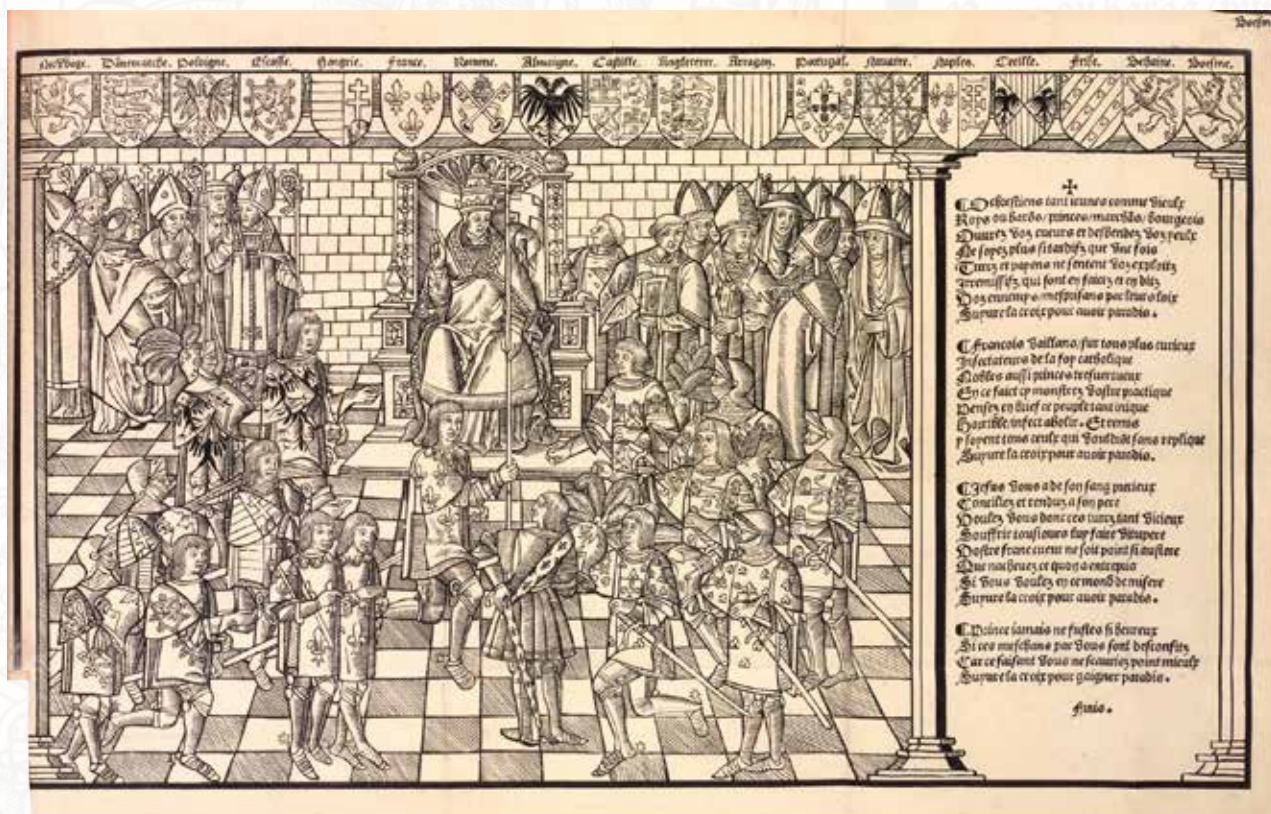 Norvoege. Dānemarche. Poloigne. Escosse. Hongrie. France. Romme. Almaigne. Castille. Angleterre. Arragon. Portugal. Navarre. Naples. Cecille. Frise. Behaine.
✠
O chrestiens tant ieunes comme vieulx
Roys ou barōs / princes / marchās / bourgeois
Ouurez voz cueurs et desbendez voz yeulx
Ne soyez plus si tardifz que vne fois
Turcz et payens ne sentent voz exploitz
qui sont en faictz et en ditz
Voz ennemys / mesprisans par leurs loix
Suyure la croix pour auoir paradis.
Francois vaillans / sur tous plus curieux
de la foy catholique
Nobles aussi princes tresuertueux
En ce faict cy monstrez vostre practique
Pensez en brief ce peuple tant inique
Horrible / infect abolir. Et remis
y soyent tous ceulx qui vouldrōt sans replique
Suyure la croix pour auoir paradis.
Jesus vous a de son sang precieux
Conciliez et renduz a son pere
Voulez vous donc ces turcz tant vicieux
Souffrir tousiours luy faire vitupere
Vostre franc cueur ne soit point si austere
Que nacheuez ce quon a entrepris
Si vous voulez en ce mond de misere
Suyure la croix pour auoir paradis.
Prince iamais ne fustes si heureux
Si ces meschans par vous sont desconfitz
Car ce faisant vous ne scauriez point mieulx
Suyure la croix pour gaigner paradis.
Finis.